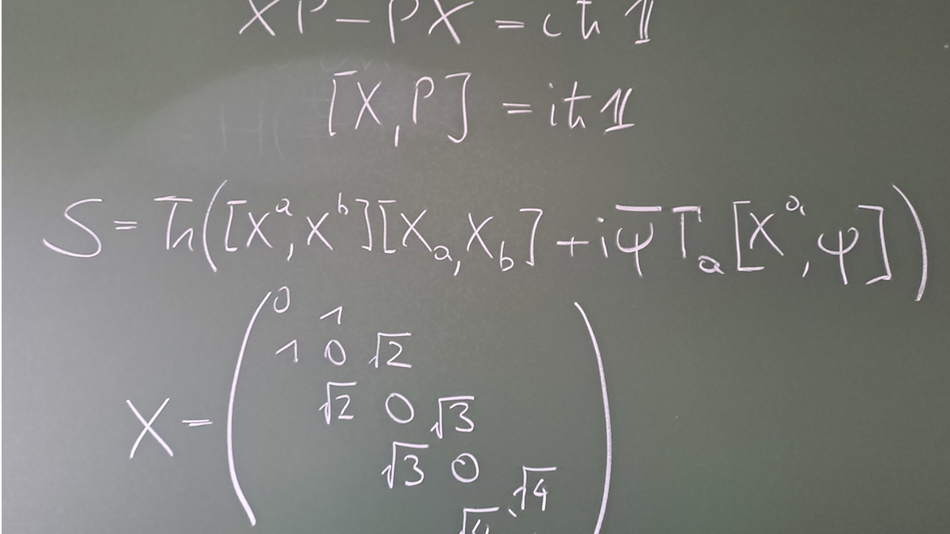 XP − PX = iħ 𝟙
[X, P] = iħ 𝟙
S = Tr([Xᵃ, Xᵇ][Xₐ, X_b] + i ψ̄ Γₐ [Xᵃ, ψ])
0 1
1 0 √2
√2 0 √3
X = √3 0
√4
√4